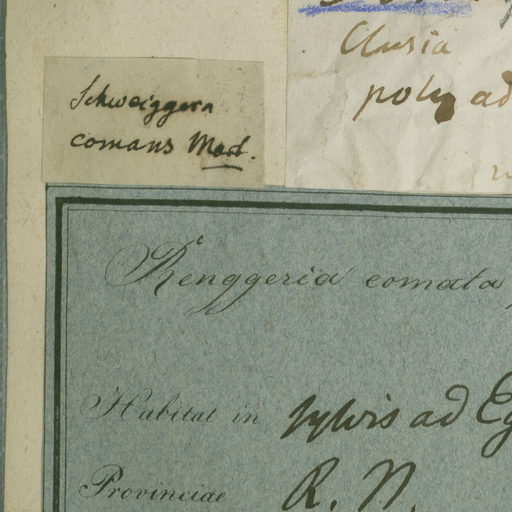 Clusia
poly ad
Schweiggera
comans Mart.
Renggeria comata
Habitat in sylvis ad Eg
Provinciae R. N.